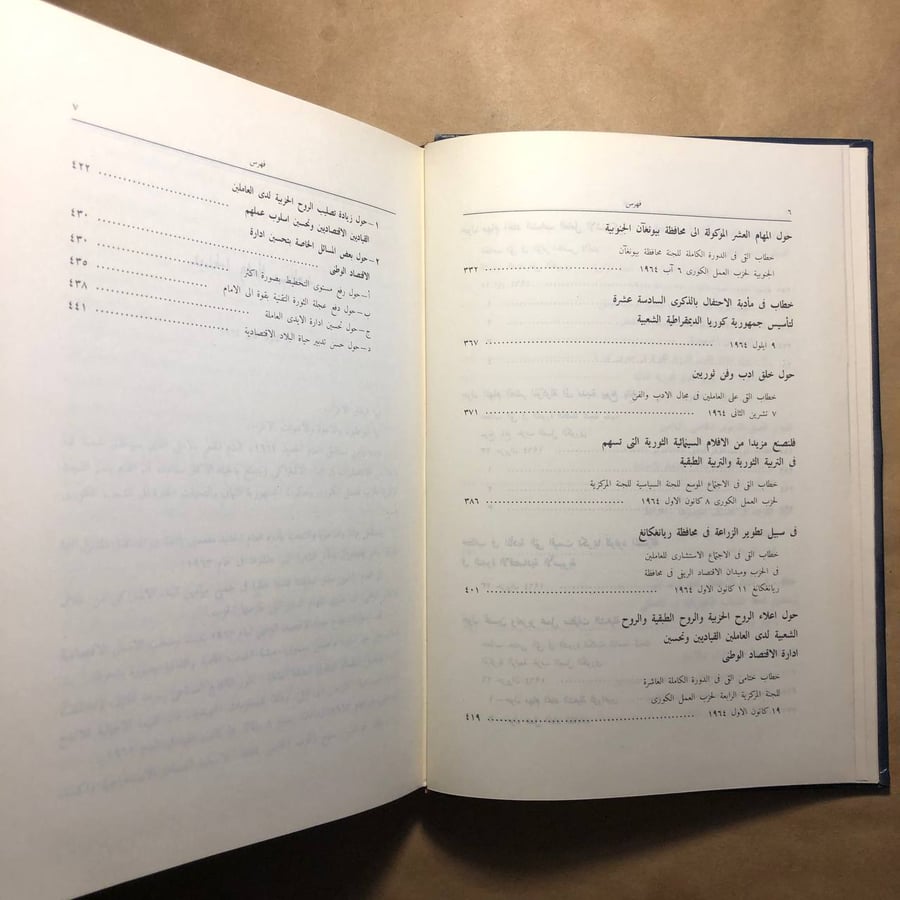 فهرس
٦
حول المهام العشر الموكولة الى محافظة بيونغآن الجنوبية
خطاب القى فى الدورة الكاملة للجنة محافظة بيونغآن
الجنوبية لحزب العمل الكورى ٦ آب ١٩٦٤ ........................ ٣٣٢
خطاب فى مأدبة الاحتفال بالذكرى السادسة عشرة
لتأسيس جمهورية كوريا الديمقراطية الشعبية
٩ ايلول ١٩٦٤ ........................ ٣٦٧
حول خلق ادب وفن ثوريين
خطاب القى على العاملين فى مجال الادب والفن
٧ تشرين الثانى ١٩٦٤ ........................ ٣٧١
فلتصنع مزيدا من الافلام السينمائية الثورية التى تسهم
فى التربية الثورية والتربية الطبقية
خطاب القى فى الاجتماع الموسع للجنة السياسية للجنة المركزية
لحزب العمل الكورى ٨ كانون الاول ١٩٦٤ ........................ ٣٨٦
فى سبيل تطوير الزراعة فى محافظة ريانغكانغ
خطاب القى فى الاجتماع الاستشارى للعاملين
فى الحزب وميدان الاقتصاد الريفى فى محافظة
ريانغكانغ ١١ كانون الاول ١٩٦٤ ........................ ٤٠١
حول اعلاء الروح الحزبية والروح الطبقية والروح
الشعبية لدى العاملين القياديين وتحسين
ادارة الاقتصاد الوطنى
خطاب ختامى القى فى الدورة الكاملة العاشرة
للجنة المركزية الرابعة لحزب العمل الكورى
١٩ كانون الاول ١٩٦٤ ........................ ٤١٩
٧
فهرس
١ – حول زيادة تصليب الروح الحزبية لدى العاملين
القياديين الاقتصاديين وتحسين اسلوب عملهم ........................ ٤٢٢
٢ – حول بعض المسائل الخاصة بتحسين ادارة
الاقتصاد الوطنى ........................ ٤٣٠
أ – حول رفع مستوى التخطيط بصورة اكثر ........................ ٤٣٠
ب – حول دفع عجلة الثورة التقنية بقوة الى الامام ........................ ٤٣٥
ج – حول تحسين ادارة الايدى العاملة ........................ ٤٣٨
د – حول حسن تدبير حياة البلاد الاقتصادية ........................ ٤٤١